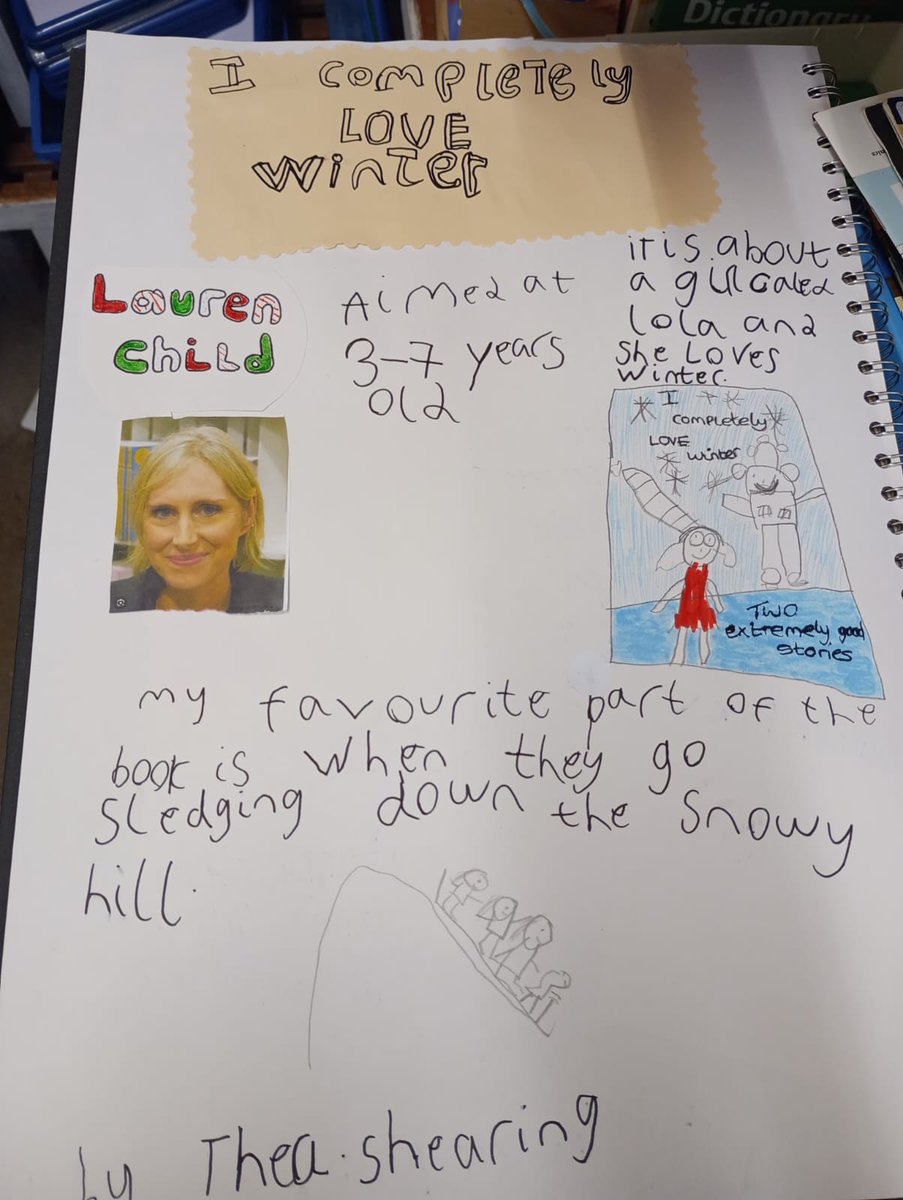 Dictionary
I COMPLETELY
LOVE
WINTER
Lauren
Child
Aimed at
3-7 years
old
it is about
a gil caled
lola and
she Loves
winter.
I
completely
LOVE
winter
TWO
extremely good
stories
my favourite part of the
book is when they go
sledging down the snowy
hill.
by Thea.shearing